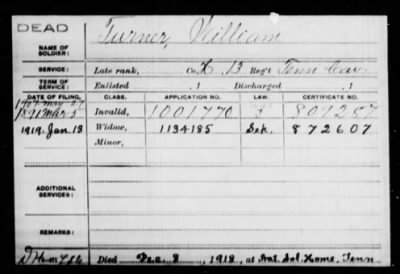 DEAD
Turner, William
NAME OF SOLDIER:
SERVICE: Late rank, Co. K 13 Reg't Tenn Cav.
TERM OF SERVICE: Enlisted , 1 Discharged , 1
DATE OF FILING. CLASS. APPLICATION NO. LAW. CERTIFICATE NO.
1907 May 27
1891 Mar 5 Invalid, 1001770 807287
1919. Jan. 13 Widow, 1134185 872607
Minor,
ADDITIONAL SERVICES:
REMARKS:
Died Dec. 8, 1918, at Nat. Sol. Home, Tenn